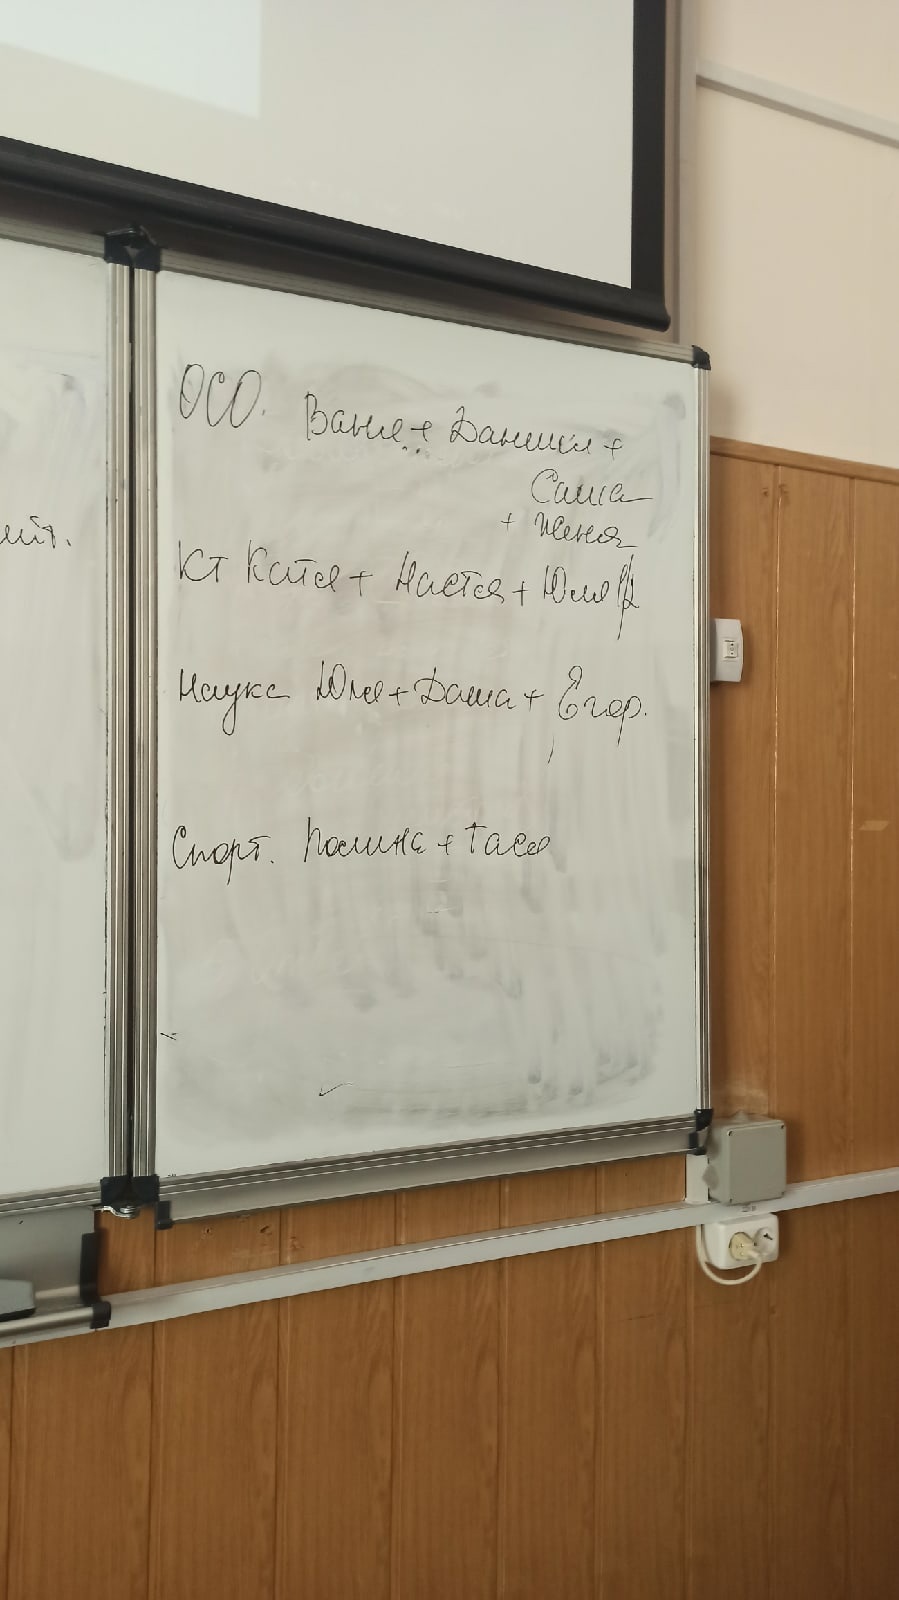 ОСО. Ваня + Даниил +
Саша
+ Женя
КТ Катя + Настя + Юля
Наука Юля + Даша + Егор.
Спорт. Полина + Тася